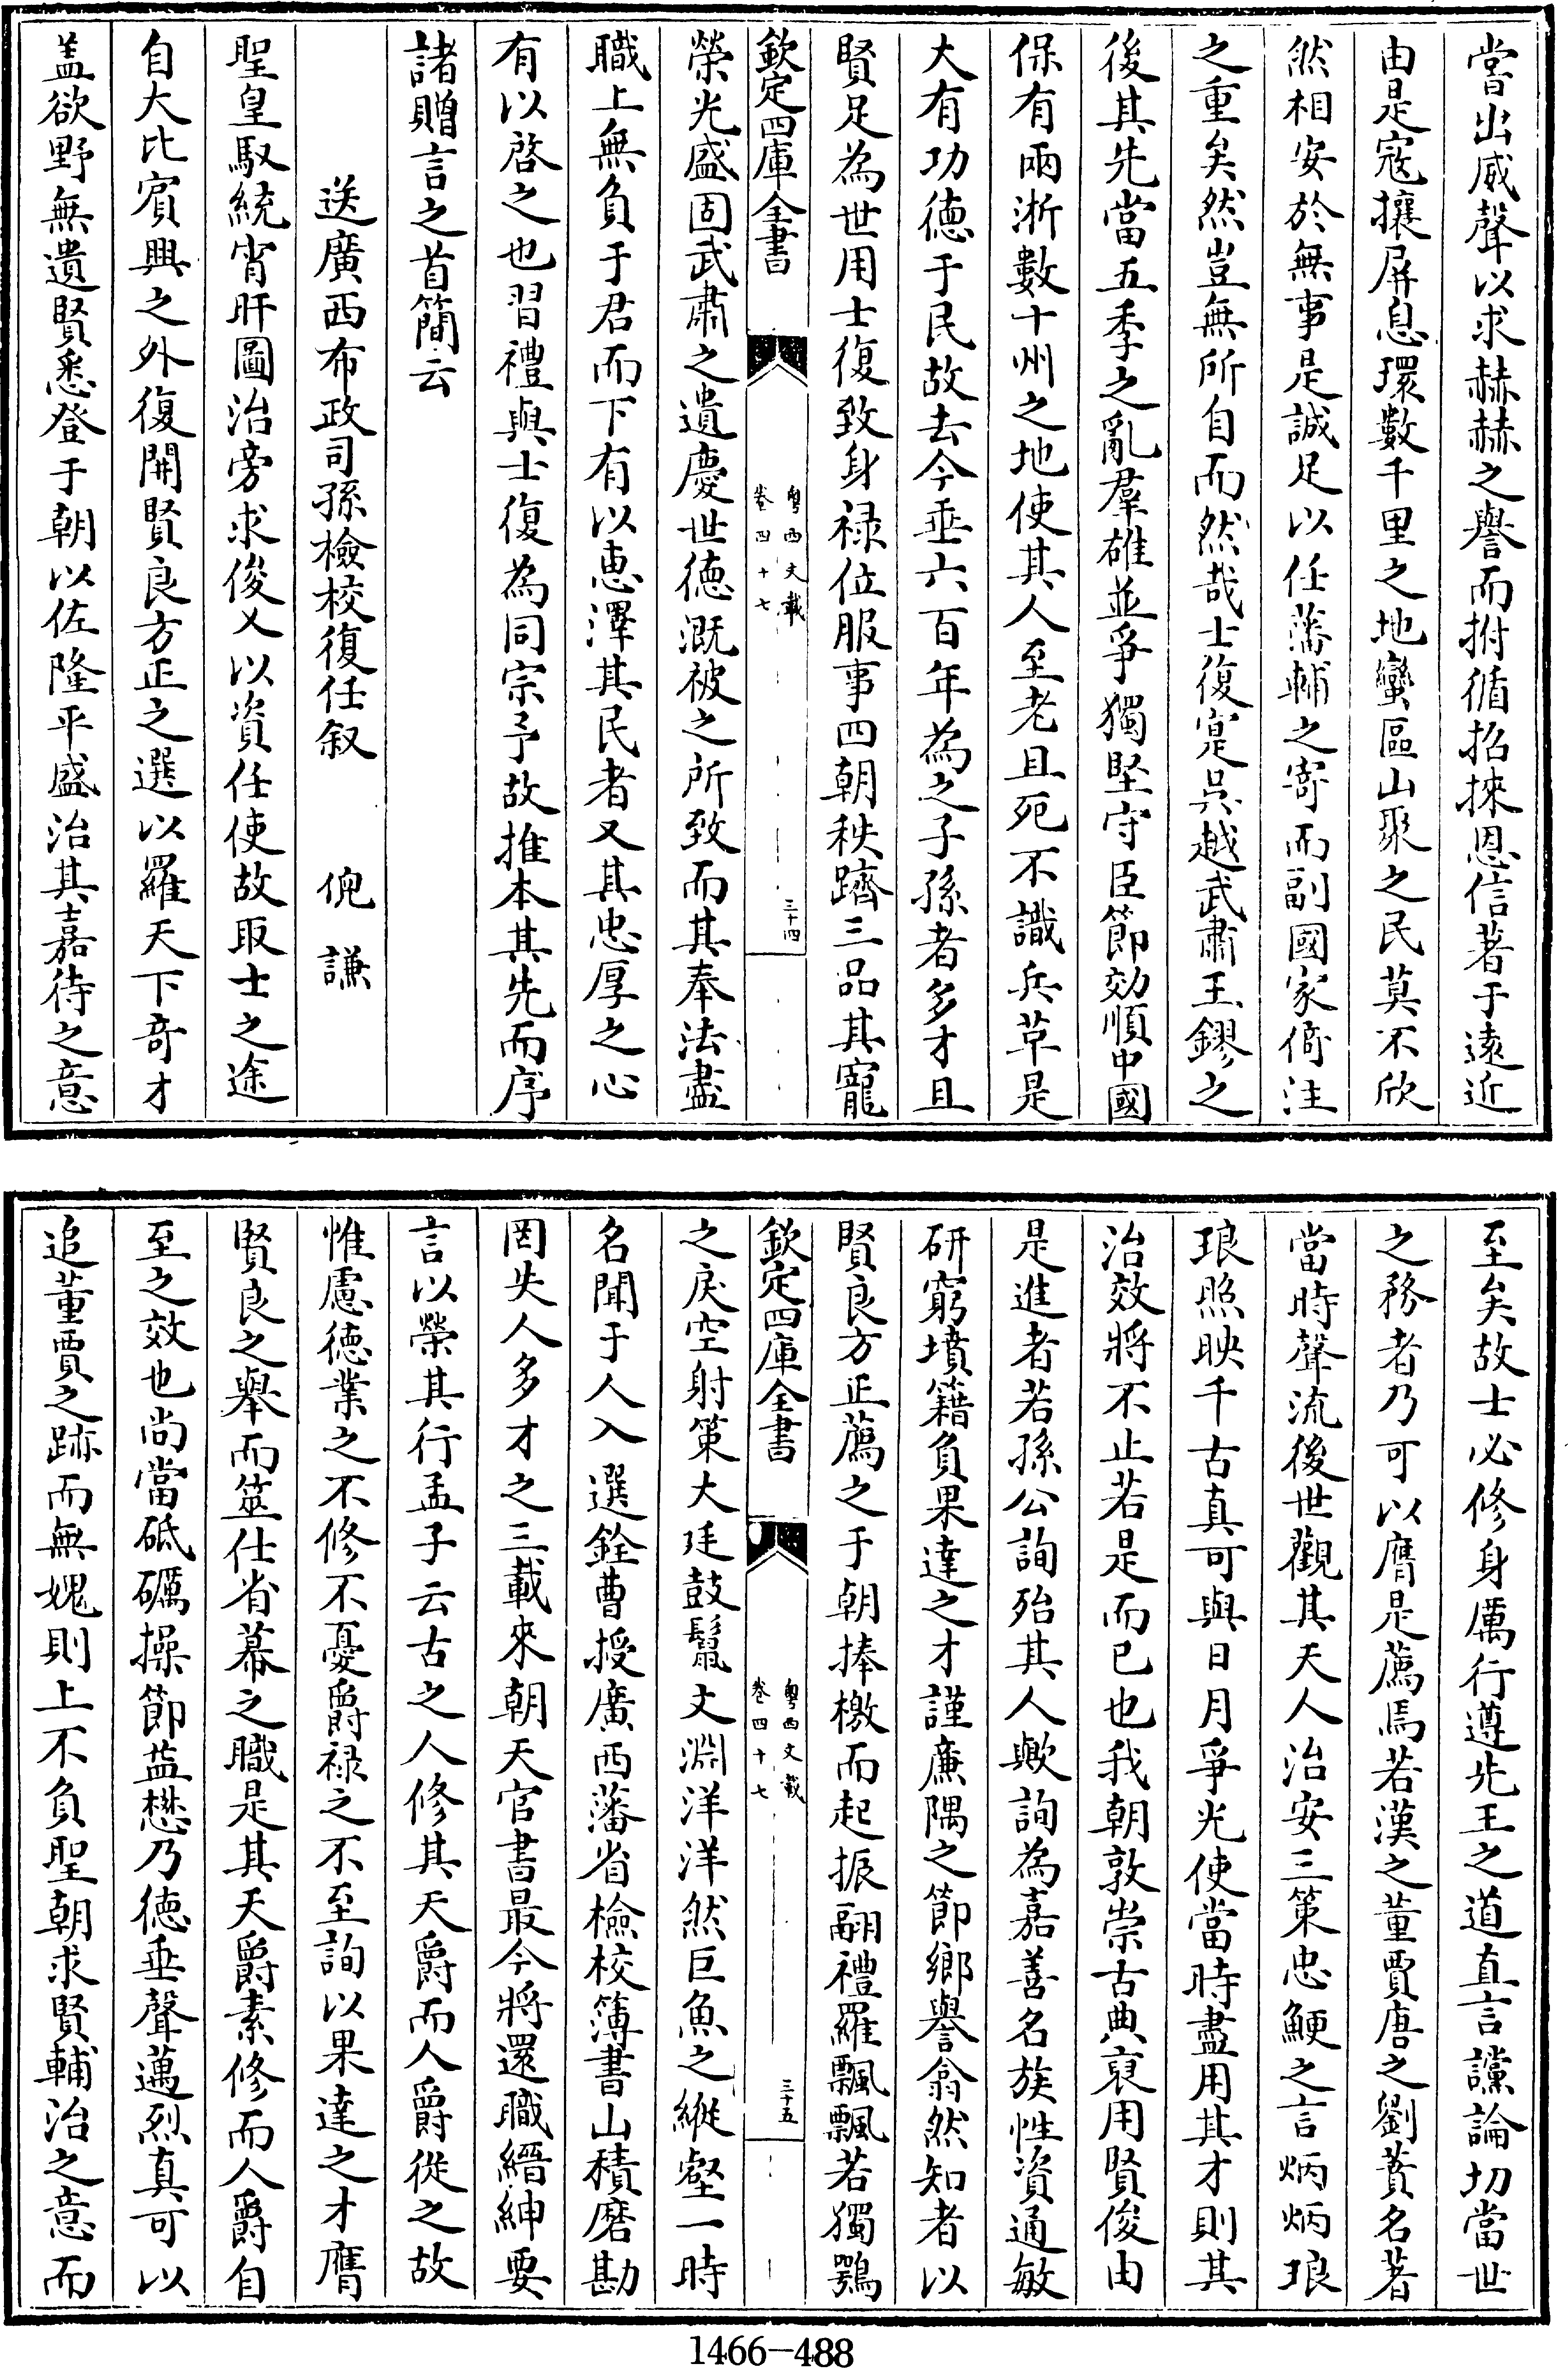 嘗出威聲以求赫赫之譽而拊循招徠恩信著于遠近
由是寇攘屏息環數千里之地蠻區山聚之民莫不欣
然相安於無事是誠足以任藩輔之寄而副國家倚注
之重矣然豈無所自而然哉士復寔吳越武肅王鏐之
後其先當五季之亂羣雄並爭獨堅守臣節効順中國
保有兩浙數十州之地使其人至老且死不識兵革是
大有功徳于民故去今垂六百年為之子孫者多才且
賢足為世用士復致身禄位服事四朝秩躋三品其寵
欽定四庫全書
粤西文載
卷四十七
三十四
榮光盛固武肅之遺慶世徳溉被之所致而其奉法盡
職上無負于君而下有以惠澤其民者又其忠厚之心
有以啓之也習禮與士復為同宗予故推本其先而序
諸贈言之首簡云
送廣西布政司孫檢校復任叙 倪謙
聖皇馭統宵旰圖治旁求俊乂以資任使故取士之途
自大比賓興之外復開賢良方正之選以羅天下竒才
盖欲野無遺賢悉登于朝以佐隆平盛治其嘉待之意
至矣故士必修身厲行遵先王之道直言讜論切當世
之務者乃可以膺是薦焉若漢之董賈唐之劉蕡名著
當時聲流後世觀其天人治安三策忠鯁之言炳炳琅
琅照映千古真可與日月爭光使當時盡用其才則其
治效將不止若是而已也我朝敦崇古典裒用賢俊由
是進者若孫公詢殆其人歟詢為嘉善名族性資通敏
研窮墳籍負果達之才謹廉隅之節鄉譽翕然知者以
賢良方正薦之于朝捧檄而起振翮禮羅飄飄若獨鶚
欽定四庫全書
粤西文載
卷四十七
三十五
之戾空射策大廷鼓鬛文淵洋洋然巨魚之縱壑一時
名聞于人入選銓曹授廣西藩省檢校簿書山積磨勘
罔失人多才之三載來朝天官書最今將還職縉紳要
言以榮其行孟子云古之人修其天爵而人爵從之故
惟慮徳業之不修不憂爵禄之不至詢以果達之才膺
賢良之舉而筮仕省幕之職是其天爵素修而人爵自
至之效也尚當砥礪操節益懋乃徳垂聲邁烈真可以
追董賈之跡而無媿則上不負聖朝求賢輔治之意而
1466-488